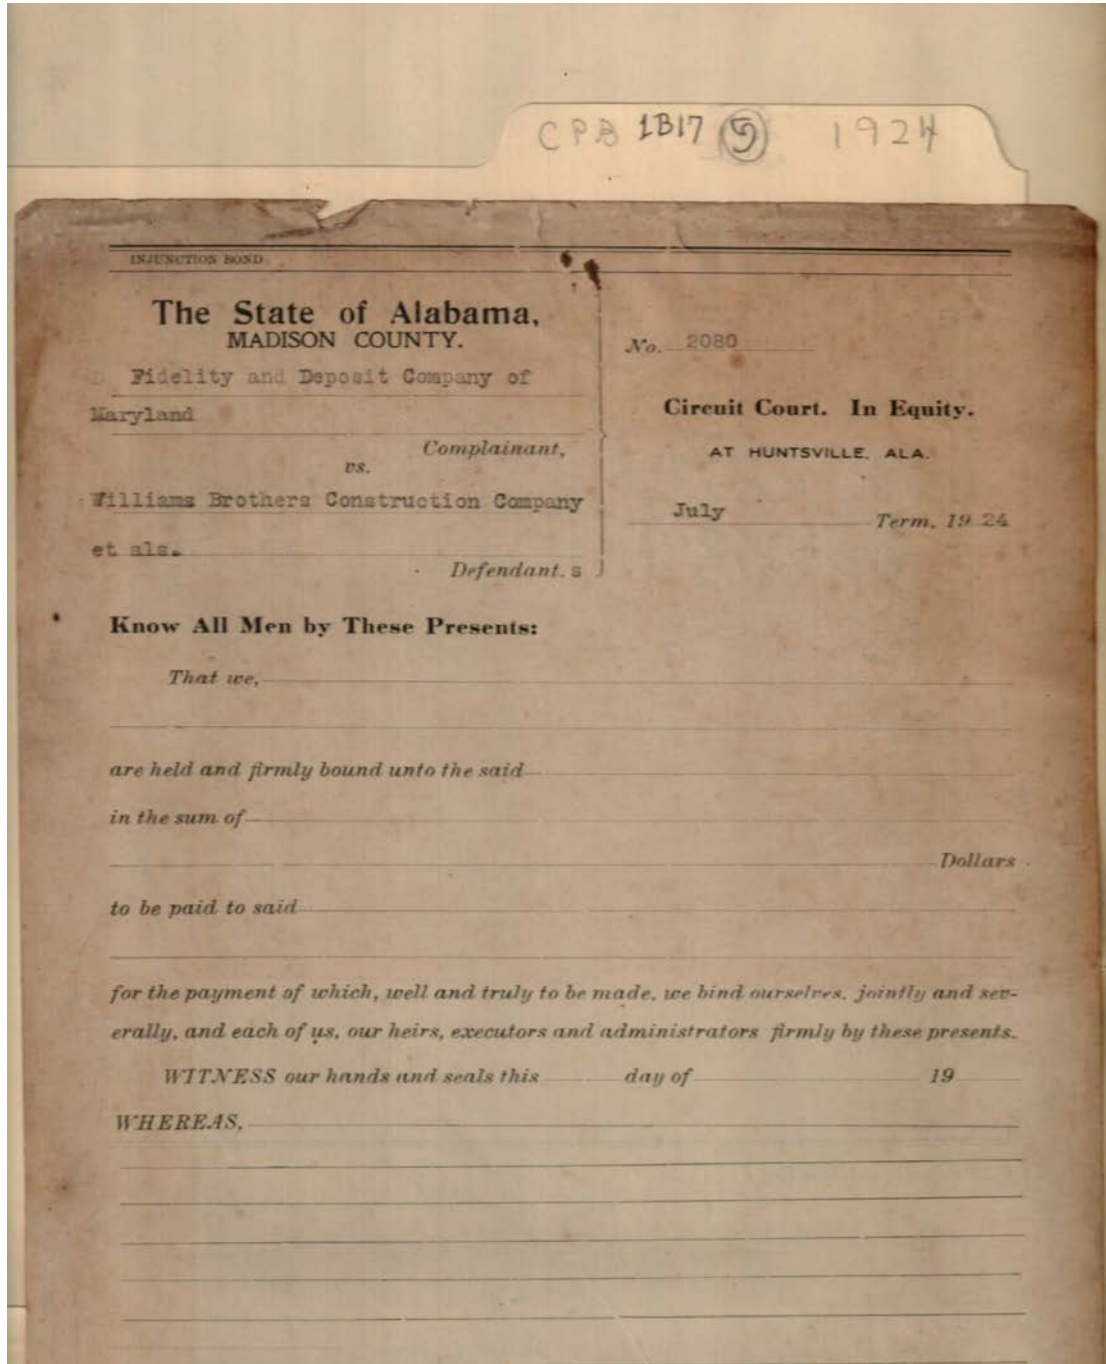 CPB 1B17 5 1924
INJUNCTION BOND
The State of Alabama,
MADISON COUNTY.
Fidelity and Deposit Company of
Maryland
Complainant,
vs.
Williams Brothers Construction Company
et als.
Defendant. s
No. 2080
Circuit Court. In Equity.
AT HUNTSVILLE, ALA.
July Term, 19 24
Know All Men by These Presents:
That we,
are held and firmly bound unto the said
in the sum of
Dollars
to be paid to said
for the payment of which, well and truly to be made, we bind ourselves, jointly and sev-
erally, and each of us, our heirs, executors and administrators firmly by these presents.
WITNESS our hands and seals this day of 19
WHEREAS,